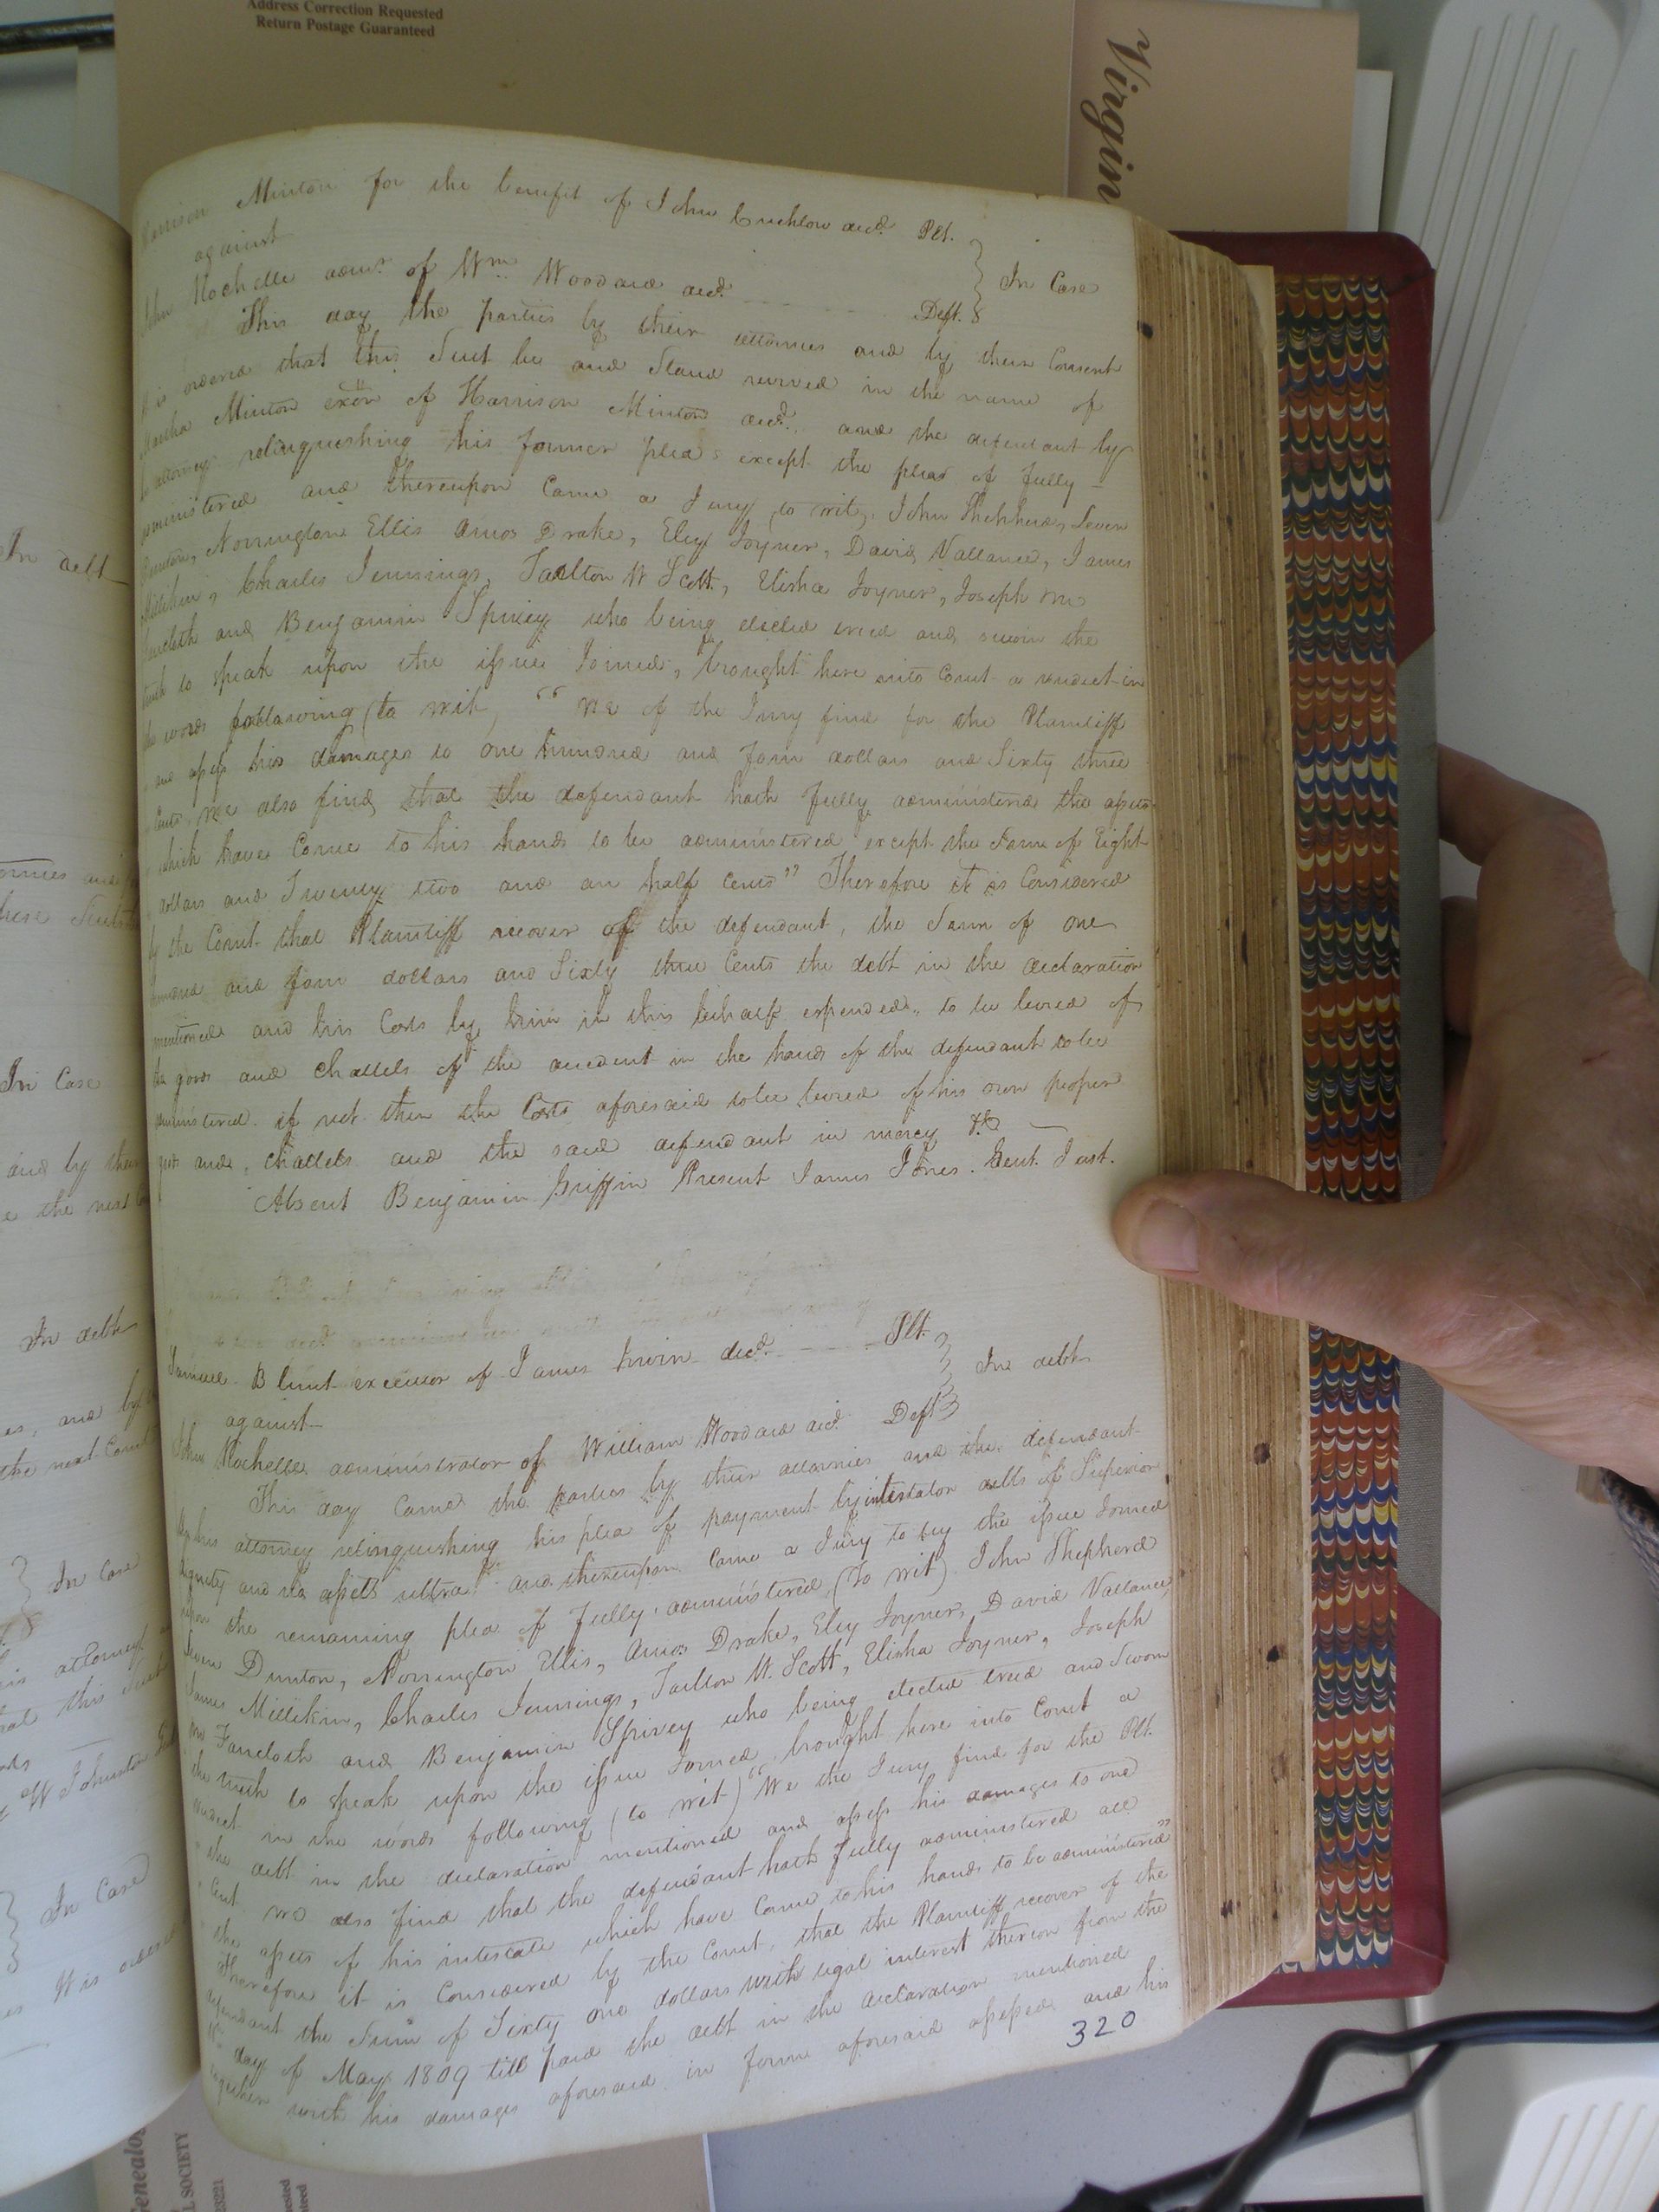 Address Correction Requested
Return Postage Guaranteed
Virgin
Harrison Minton for the benefit of John Crichlow decd. Plt.
against
In Case
John Rochelle admr. of Wm. Woodard decd. Deft.
This day the parties by their attornies and by their Consent
it is ordered that this Suit be and Stand revived in the name of
Martha Minton exōn of Harrison Minton decd. and the defendant by
his attorney relinquishing his former pleas except the pleas of fully
administered and thereupon Came a Jury, to wit, John Shephherd, Leven
Dunton, Norrington Ellis Amos Drake, Eley Joyner, David Vallance, James
Millikin, Charles Jennings, Tarlton W Scott, Elisha Joyner, Joseph Mc
Faucloth and Benjamin Spivey who being elected tried and sworn the
truth to speak upon the issue Joined, brought here into Court a verdict in
the words following (to wit, "we of the Jury find for the Plaintiff
and assess his damages to one hundred and four dollars and Sixty three
Cents we also find that the defendant hath fully administered the assets
which have Come to his hands to be administered except the Sum of Eight
dollars and Twenty two and an half Cents" Therefore it is Considered
by the Court that Plaintiff recover of the defendant, the Sum of one
hundred and four dollars and Sixty three Cents the debt in the declaration
mentioned and his Costs by him in this behalf expended, to be levied of
the goods and chattels of the decedent in the hands of the defendant to be
administered. if not then the Costs aforesaid to be levied of his own proper
goods and chattels and the said defendant in mercy &c
Absent Benjamin Griffin Present James Jones. Gent. Just.
Samuel Blunt executor of James Kirvin decd. Plt.
In debt
against
John Rochelle administrator of William Woodard decd. Deft
This day Came the parties by their attornies and the defendant
by his attorney relinquishing his plea of payment by intestator debts of Superior
dignity and no assets ultra and thereupon Came a Jury to try the issue Joined
upon the remaining plea of fully administered (to wit) John Shepherd
Leven Dunton, Norrington Ellis, Amos Drake, Eley Joyner, David Vallance,
James Millikin, Charles Jennings, Tarlton W. Scott, Elisha Joyner, Joseph
Mc Faucloth and Benjamin Spivey who being elected tried and Sworn
the truth to speak upon the issue Joined brought here into Court a
verdict in the words following (to wit) "We the Jury find for the Plt.
the debt in the declaration mentioned and assess his damages to one
Cent we also find that the defendant hath fully administered all
the assets of his intestate which have Come to his hands to be administered"
Therefore it is Considered by the Court, that the Plaintiff recover of the
defendant the Sum of Sixty one dollars with legal interest thereon from the
day of May 1809 till paid the debt in the declaration mentioned
together with his damages aforesaid in form aforesaid assessed and his
320
In debt
In Case
and by their
the next
In debt
and by
the next Court
In Case
his attorney
that this Suit
W Johnston
In Case
It is ordered
Genealo
L SOCIETY
23221